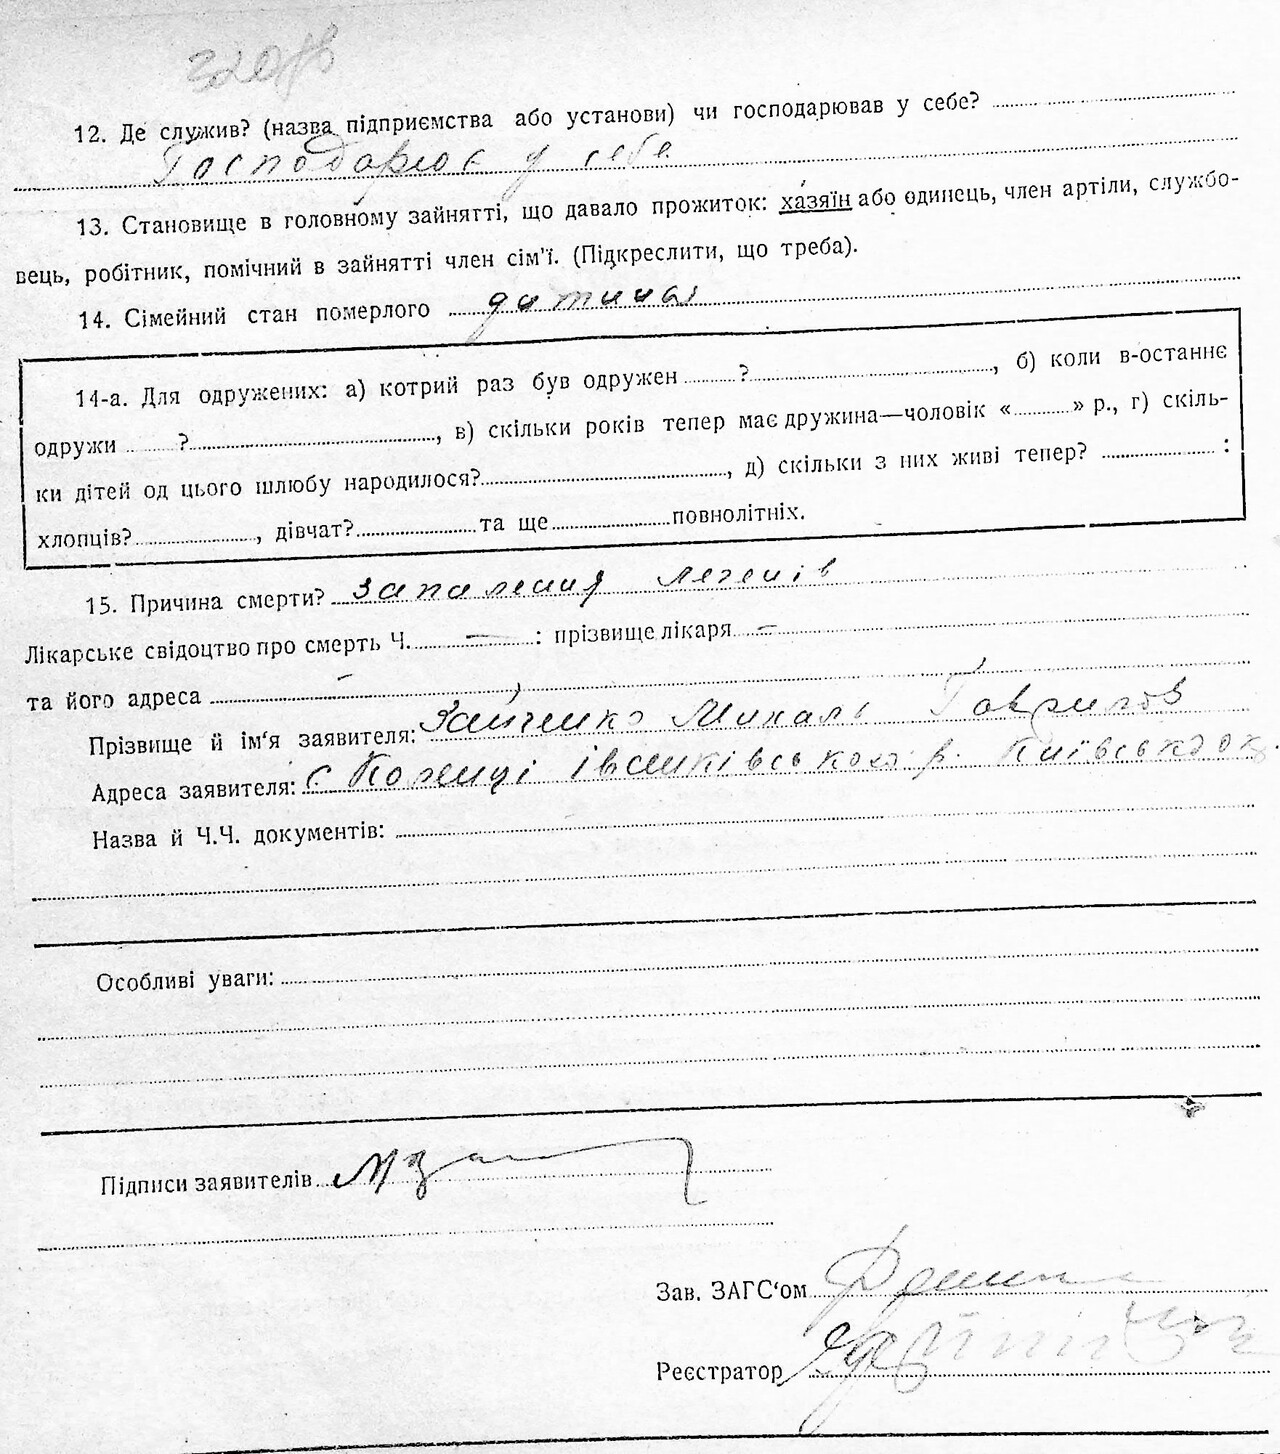 12. Де служив? (назва підприємства або установи) чи господарював у себе?
Господарює у себе
13. Становище в головному зайнятті, що давало прожиток: хазяїн або одинець, член артіли, службо-
вець, робітник, помічний в зайнятті член сім'ї. (Підкреслити, що треба).
14. Сімейний стан померлого дитина
14-а. Для одружених: а) котрий раз був одружен ?, б) коли в-останнє
одружи ?, в) скільки років тепер має дружина—чоловік « » р., г) скіль-
ки дітей од цього шлюбу народилося?, д) скільки з них живі тепер? :
хлопців?, дівчат? та ще повнолітніх.
15. Причина смерти? запалення легенів
Лікарське свідоцтво про смерть Ч. — : прізвище лікаря –
та його адреса –
Прізвище й ім'я заявителя: Зайченко Михаль Гаврилов
Адреса заявителя: с івanківського р. Київської ок.
Назва й Ч.Ч. документів:
Особливі уваги:
Підписи заявителів
Зав. ЗАГС'ом
Реєстратор